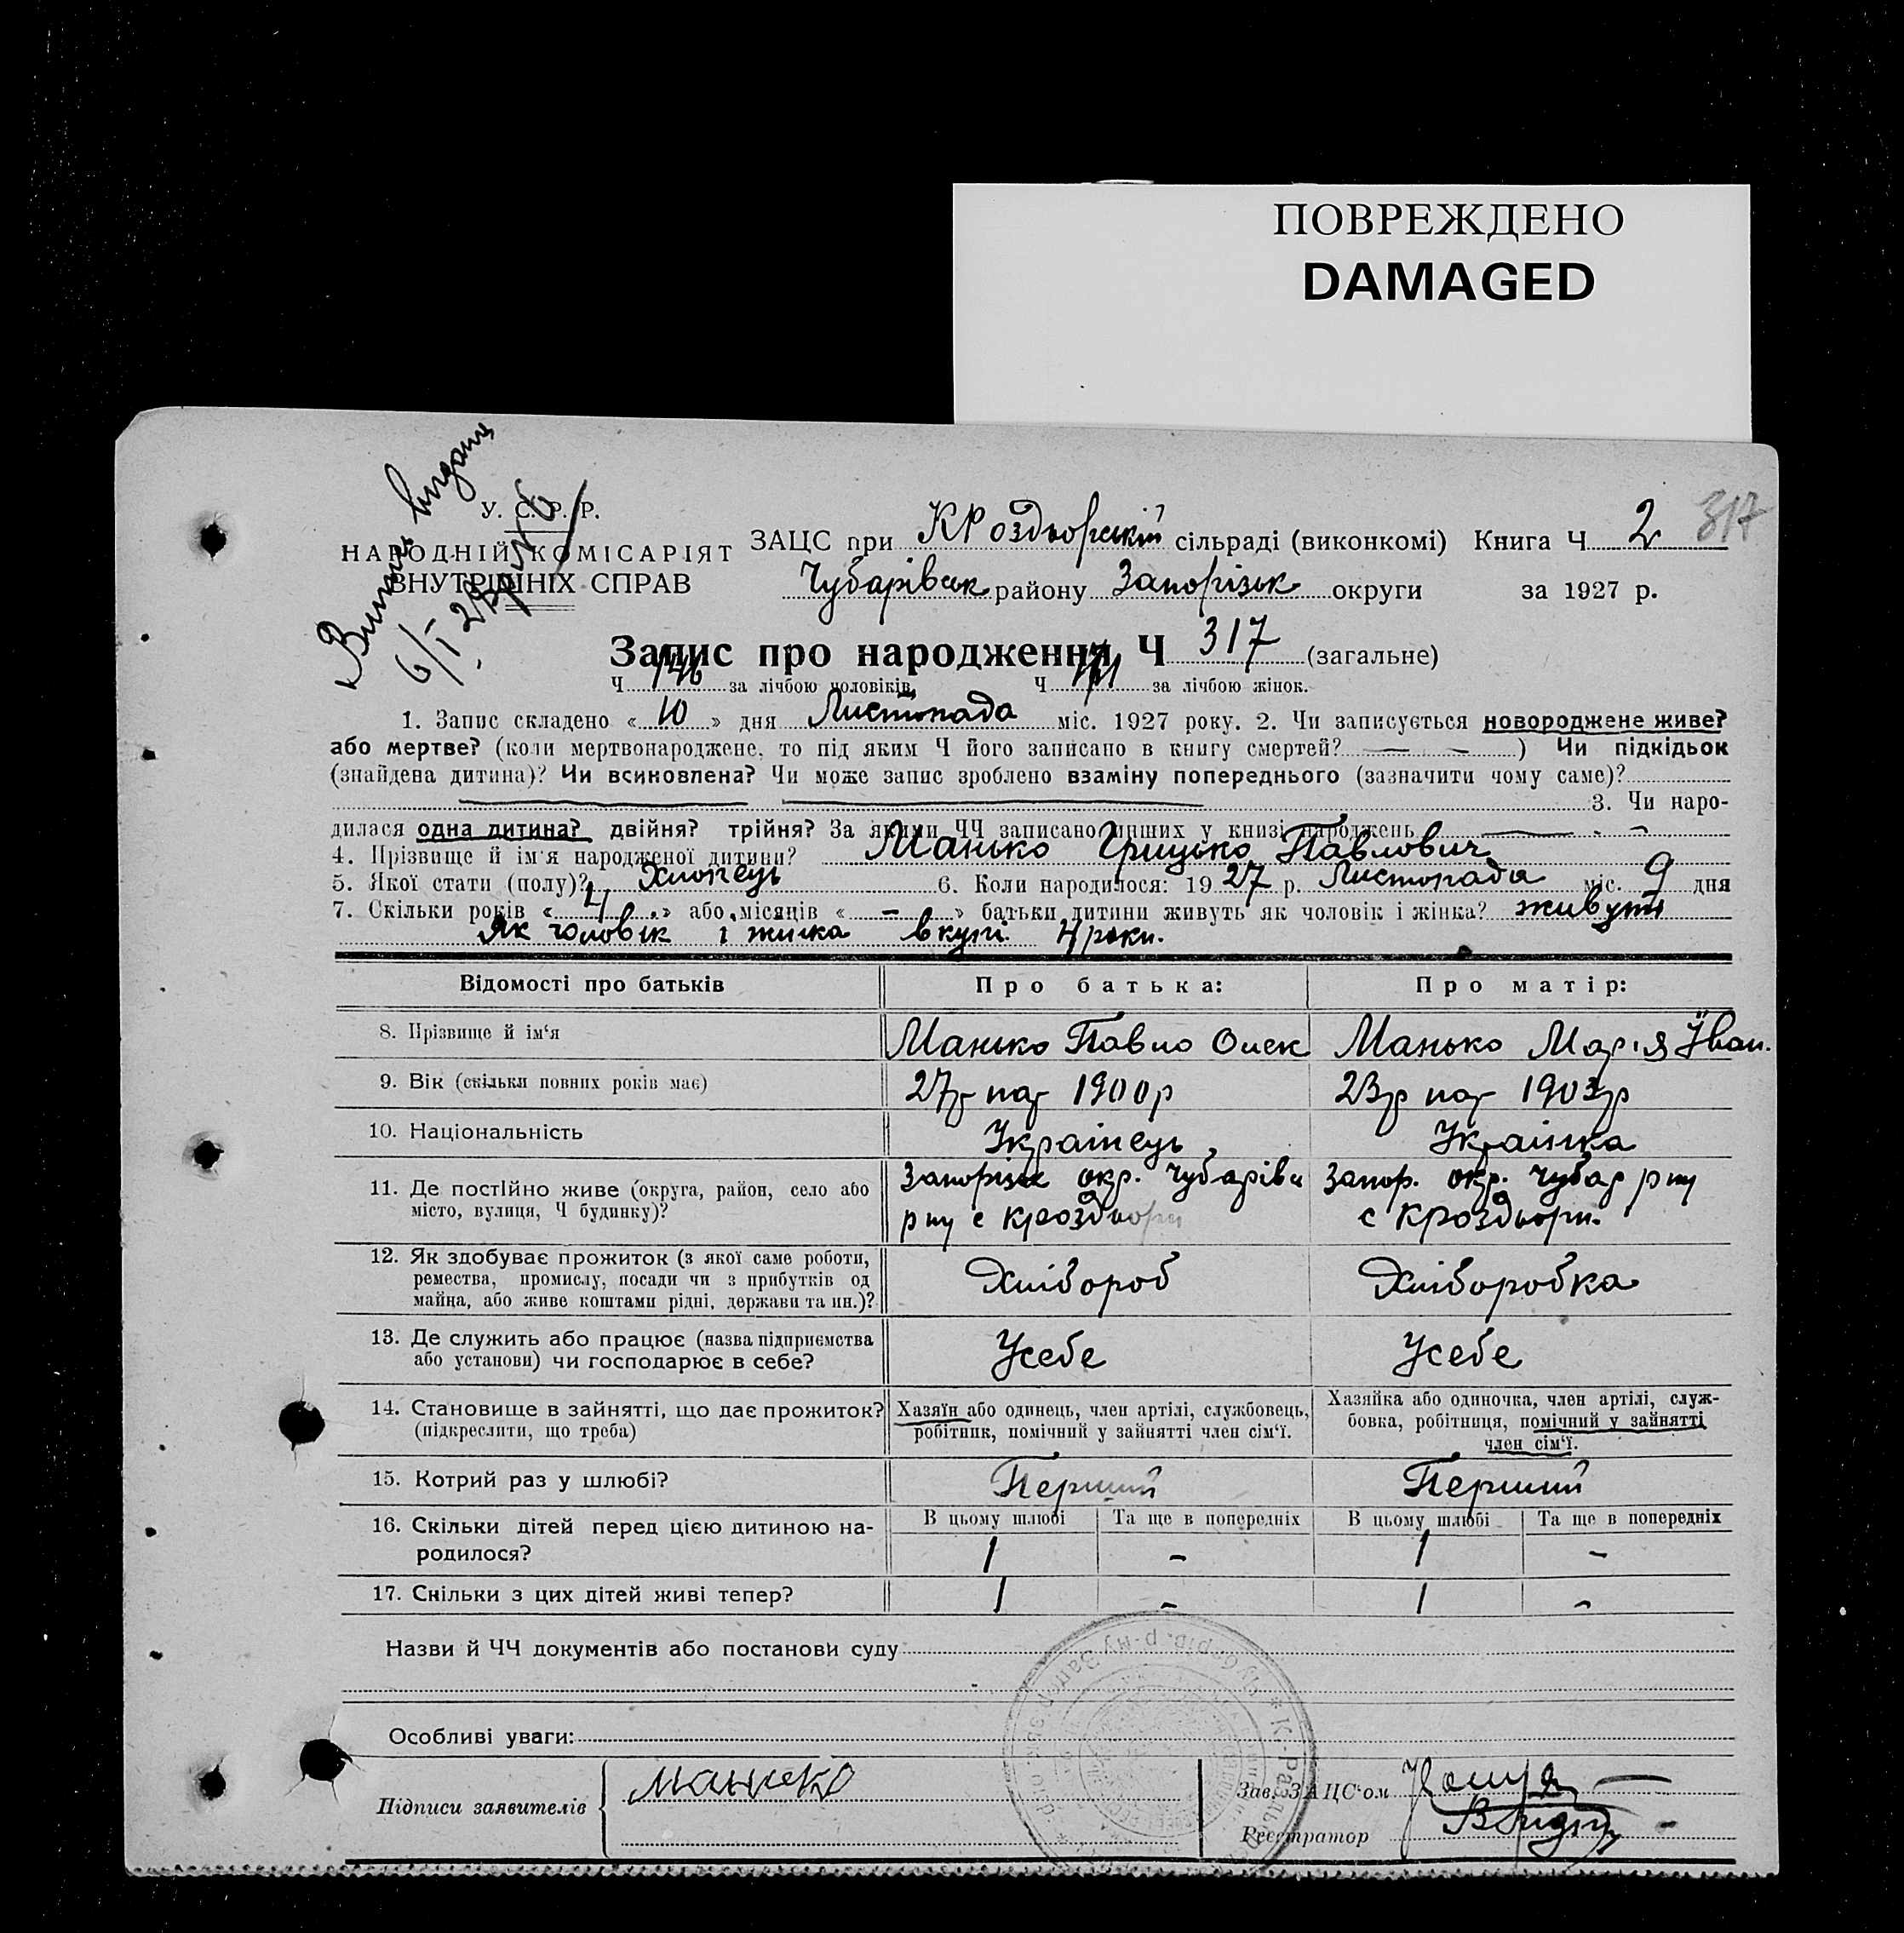 ПОВРЕЖДЕНО
DAMAGED
Витяг видано
6/I 28р
317
У. С. Р. Р.
НАРОДНІЙ КОМІСАРІЯТ
ВНУТРІШНІХ СПРАВ
ЗАЦС при КРоздорській сільраді (виконкомі) Книга Ч 2
Чубарівськ району Запорізьк округи за 1927 р.
Запис про народження Ч 317 (загальне)
Ч 146 за лічбою чоловіків, Ч 171 за лічбою жінок.
1. Запис складено « 10 » дня Листопада міс. 1927 року. 2. Чи записується новороджене живе?
або мертве? (коли мертвонароджене, то під яким Ч його записано в книгу смертей? — - ) Чи підкідьок
(знайдена дитина)? Чи всиновлена? Чи може запис зроблено взаміну попереднього (зазначити чому саме)?
3. Чи наро-
дилася одна дитина? двійня? трійня? За якими ЧЧ записано инших у книзі народжень
4. Прізвище й ім'я народженої дитини? Манько Грицько Павлович
5. Якої стати (полу)? Хлопець 6. Коли народилося: 1927 р. Листопада міс. 9 дня
7. Скільки років « 4 » або місяців « - » батьки дитини живуть як чоловік і жінка? живуть
Як чоловік і жінка вкупі 4 роки.
Відомості про батьків Про батька: Про матір:
8. Прізвище й ім'я Манько Павло Олек Манько Марія Іван.
9. Вік (скільки повних років має) 27р нар 1900р 23р нар 1903р
10. Національність Українець Українка
11. Де постійно живе (округа, район, село або Запорізьк окр. Чубарівс Запор. окр. Чубар рну
місто, вулиця, Ч будинку)? рну с Кроздори с Кроздори.
12. Як здобуває прожиток (з якої саме роботи,
ремества, промислу, посади чи з прибутків од Хлібороб Хліборобка
майна, або живе коштами рідні, держави та ин.)?
13. Де служить або працює (назва підприємства Усебе Усебе
або установи) чи господарює в себе?
14. Становище в зайнятті, що дає прожиток? Хазяїн або одинець, член артілі, службовець, Хазяйка або одиночка, член артілі, служ-
(підкреслити, що треба) робітник, помічний у зайнятті член сім'ї. бовка, робітниця, помічний у зайнятті
член сім'ї.
15. Котрий раз у шлюбі? Перший Перший
16. Скільки дітей перед цією дитиною на- В цьому шлюбі Та ще в попередніх В цьому шлюбі Та ще в попередніх
родилося? 1 - 1 -
17. Скільки з цих дітей живі тепер? 1 - 1 -
Назви й ЧЧ документів або постанови суду
Особливі уваги:
Підписи заявителів Манько Зав. ЗАЦС'ом
Реєстратор